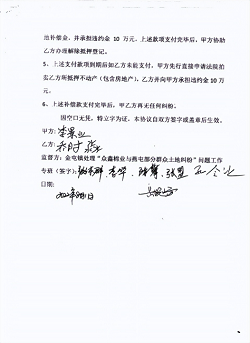 治补偿金，并承担违约金 10 万元。上述款项支付完毕后，甲方协助
乙方办理解除抵押登记。
5、上述支付款项到期后如乙方未能支付，甲方先行直接申请法院拍
卖乙方所抵押不动产（包含房地产），乙方并向甲方承担违约金 10 万
元。
6、上述补偿款支付完毕后，甲乙方再无任何纠纷。
因空口无凭，特立字为证。本协议自双方签字或盖章后生效。
甲方：
乙方：
监督方：金屯镇处理“众鑫棉业与燕屯部分群众土地纠纷”问题工作
专班（签字）：
日期：